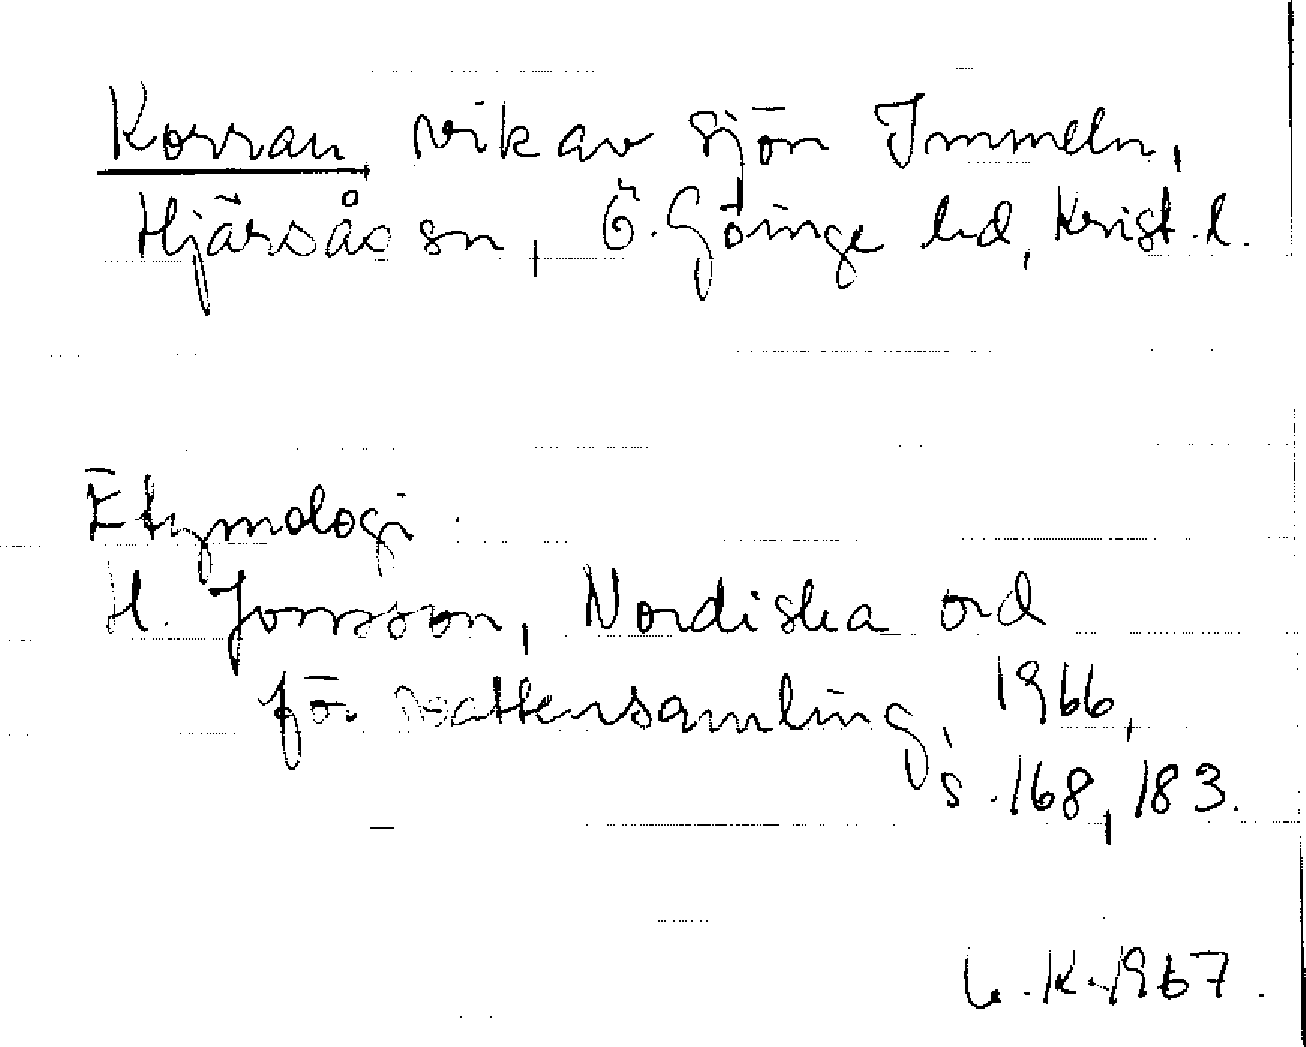 Korran, vik av sjön Immeln,
Hjärsås sn, Ö. Göinge hd, Krist. l.
Etymologi:
H. Jonsson, Nordiska ord
för vattensamling, 1966,
s. 168, 183.
K. 1967.